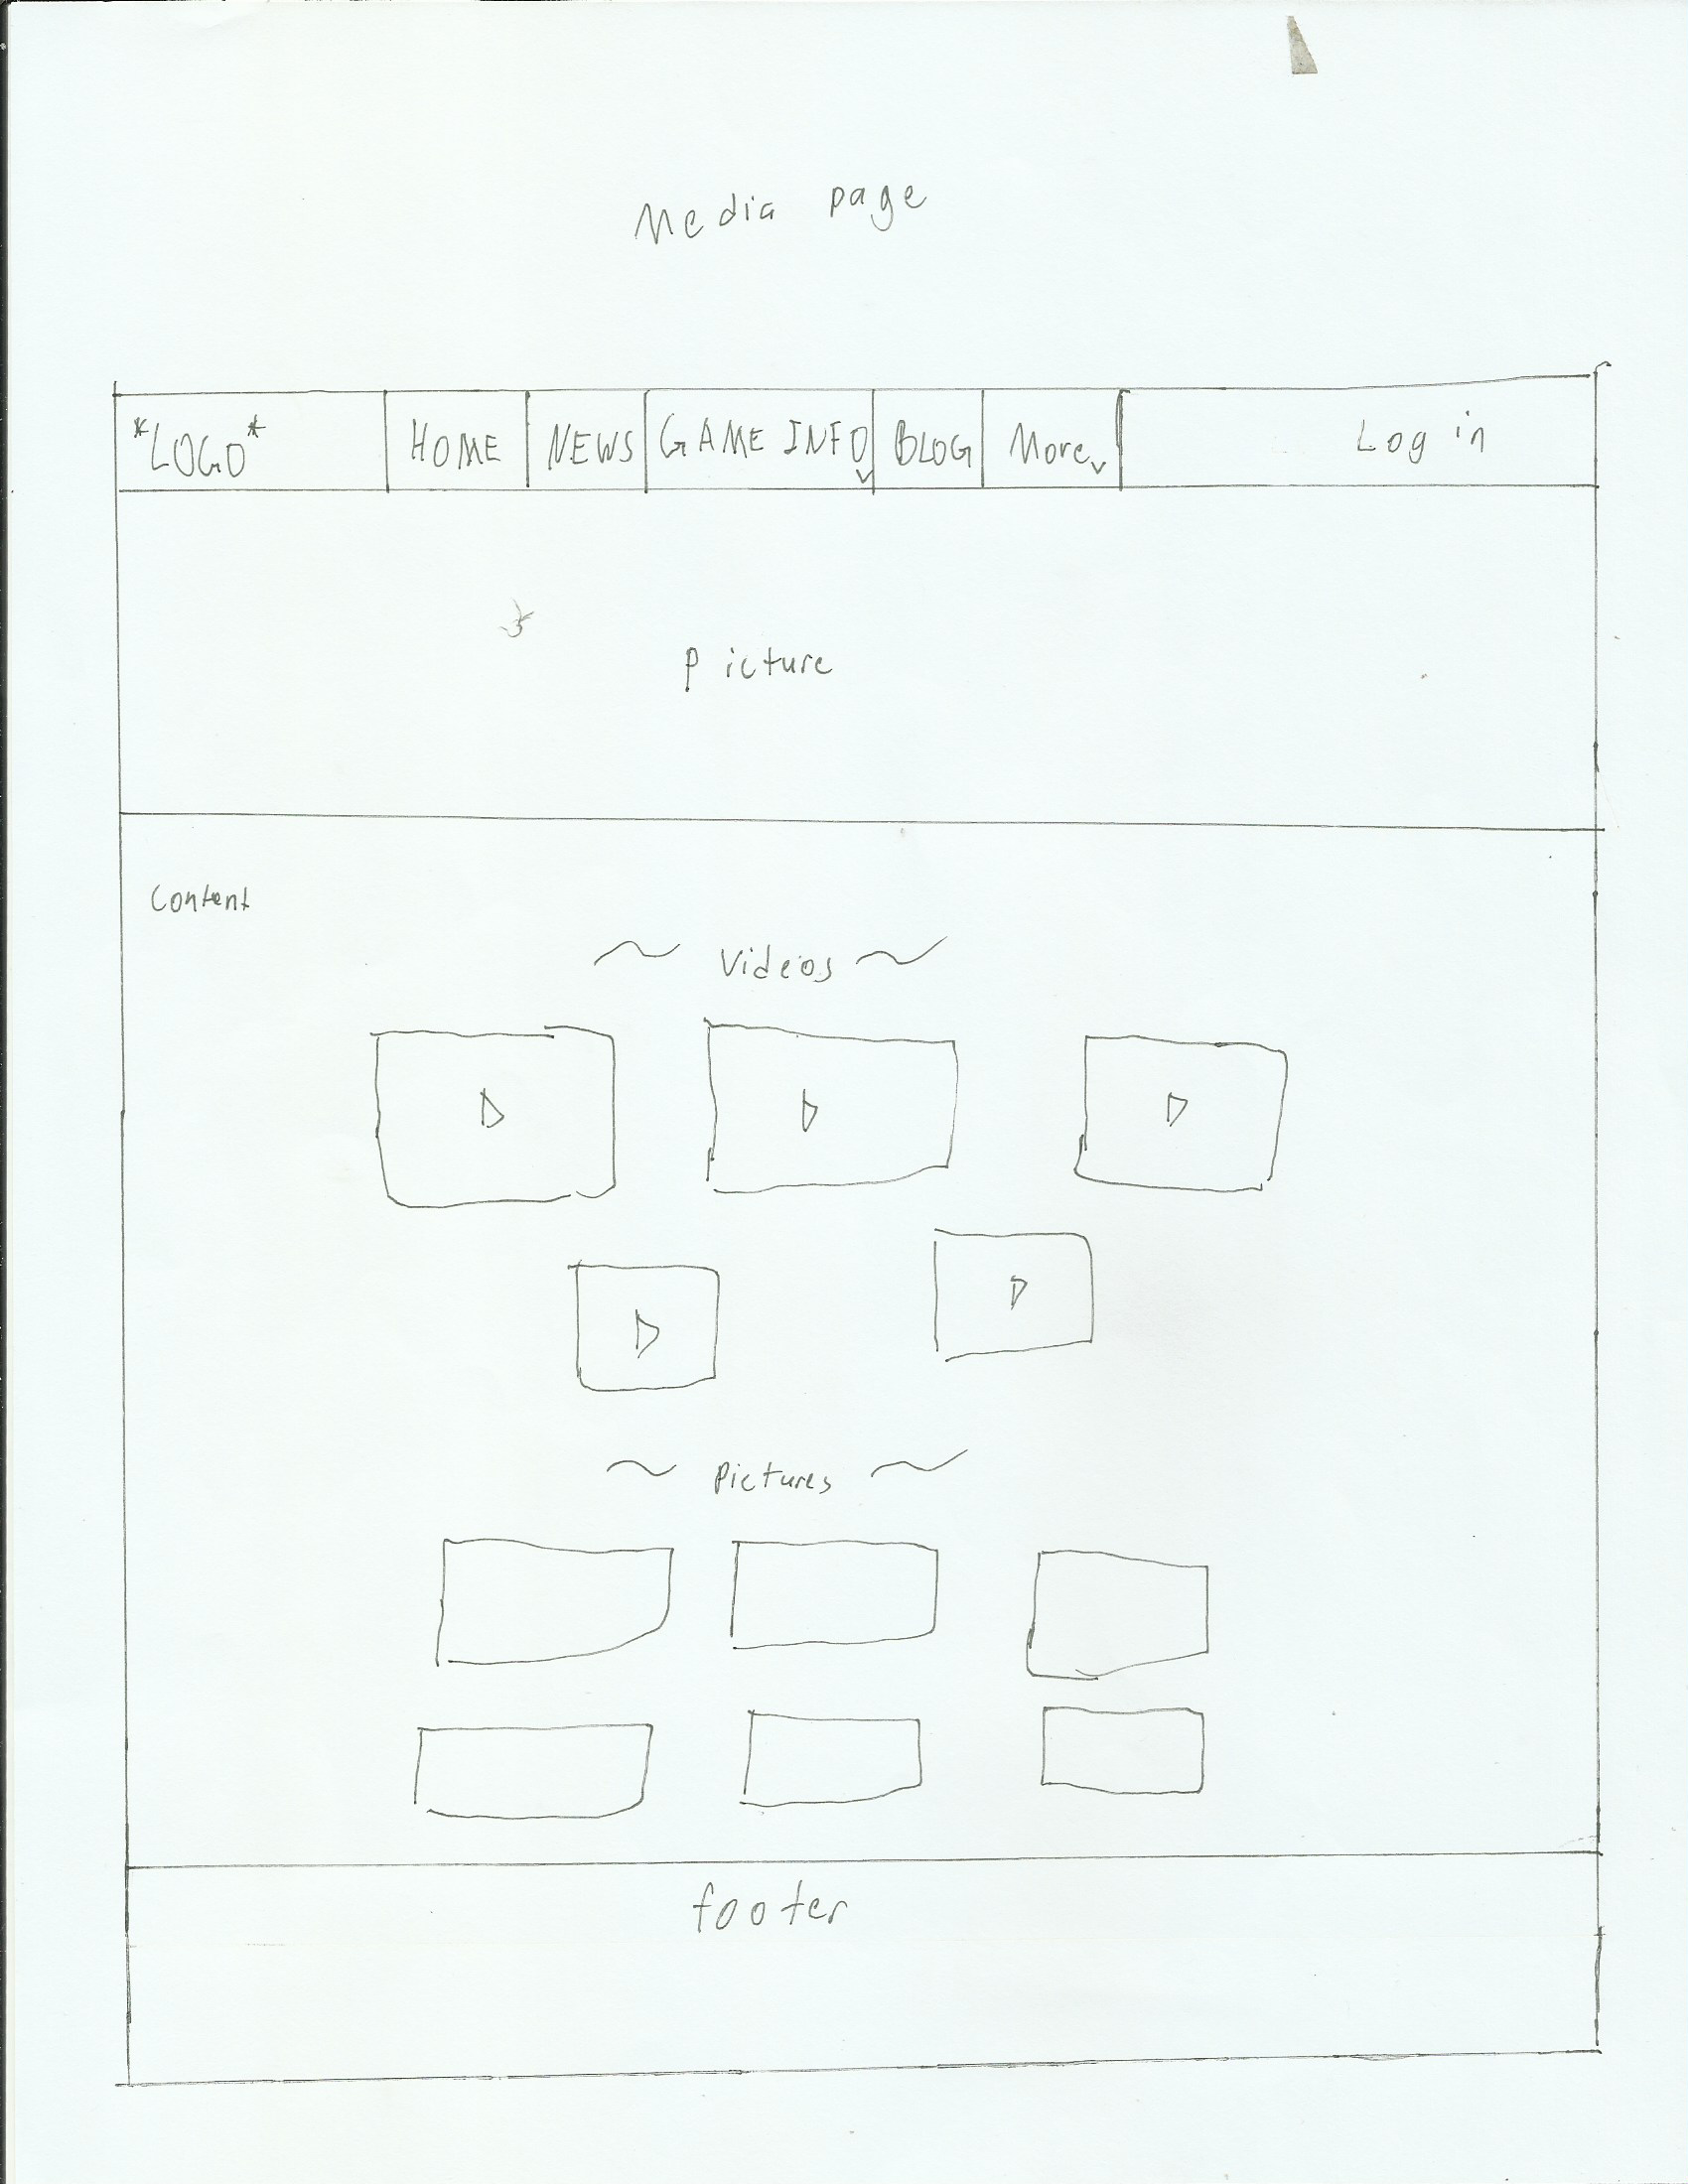 Media page
*LOGO* HOME NEWS GAME INFO BLOG More Log in
picture
Content
~ Videos ~
~ Pictures ~
footer